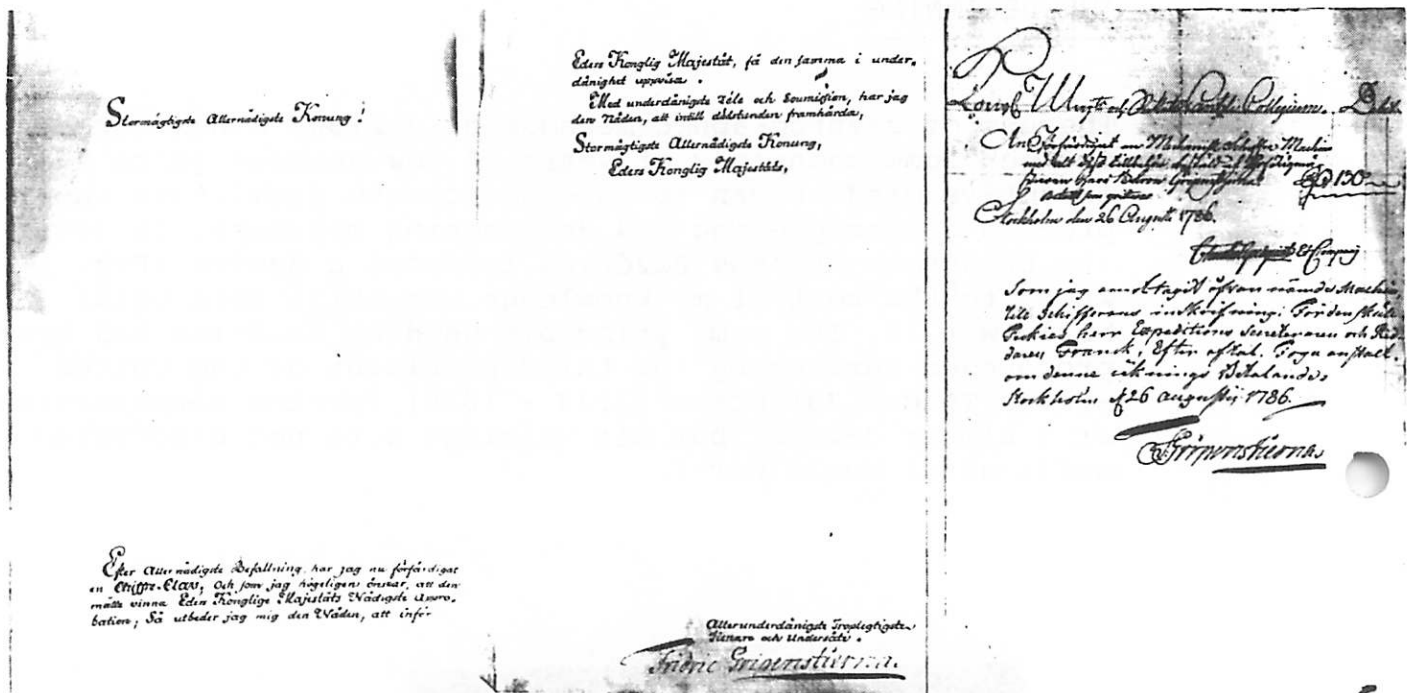 Stormägtigste Allernådigste Konung!
Efter Allernådigste Befallning, har jag nu förfärdigat
en Chiffre-Clav; Och som jag högeligen önskar, att den
måtte vinna Eders Konglige Majestäts Nådigste Appro-
bation; Så utbeder jag mig den Nåden, att inför
Eders Konglig Majestät, få den samma i under-
dånighet uppvisa.
Med underdånigste Zéle och Soumission, har jag
den Nåden, att intill dödstunden framhärda,
Stormägtigste Allernådigste Konung,
Eders Konglig Majestäts,
Allerunderdånigste Tropligtigste
tienare och Undersåte.
Fridric Gripenstierna.
Kongl Collegium. Debet
An Förfärdigat en Machin
med allt
130
Stockholm den 26 Augusti 1786.
et Comp
Som jag emottagit ofvannämde Machin,
till Schifferens inskrifning; För den skull
herr Expeditions Secreteraren och Rid-
daren Franck, Efter aftal. Foga anstalt
om denne räknings Betalande.
Stockholm d 26 Augustij 1786.
Gripenstierna